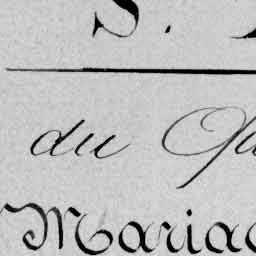 S.
du Qu
Mariag